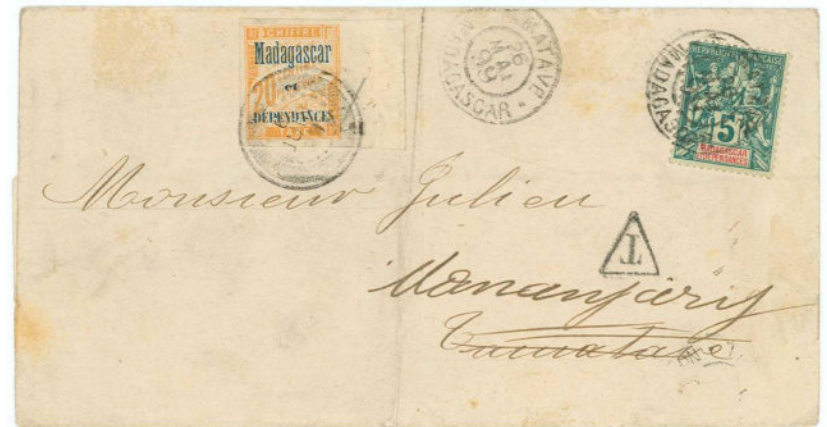 CHIFFRE
Madagascar
20
DÉPENDANCES
TAXE
TAMATAVE
26
MAI
99
MADAGASCAR
MADAGASCAR
REPUBLIQUE FRANÇAISE
5
MADAGASCAR
ET DÉPENDANCES
Monsieur Julien
T
Mananjary
Tamatave